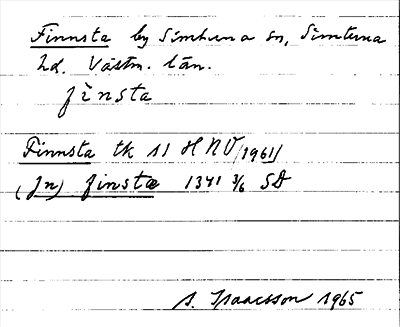 Finnsta by Simtuna sn, Simtuna
hd. Västm. län.
finsta
Finnsta tk 11 H NV/1961/
(Jn) finstæ 1341 3/6 SD
S. Isaacsson 1965